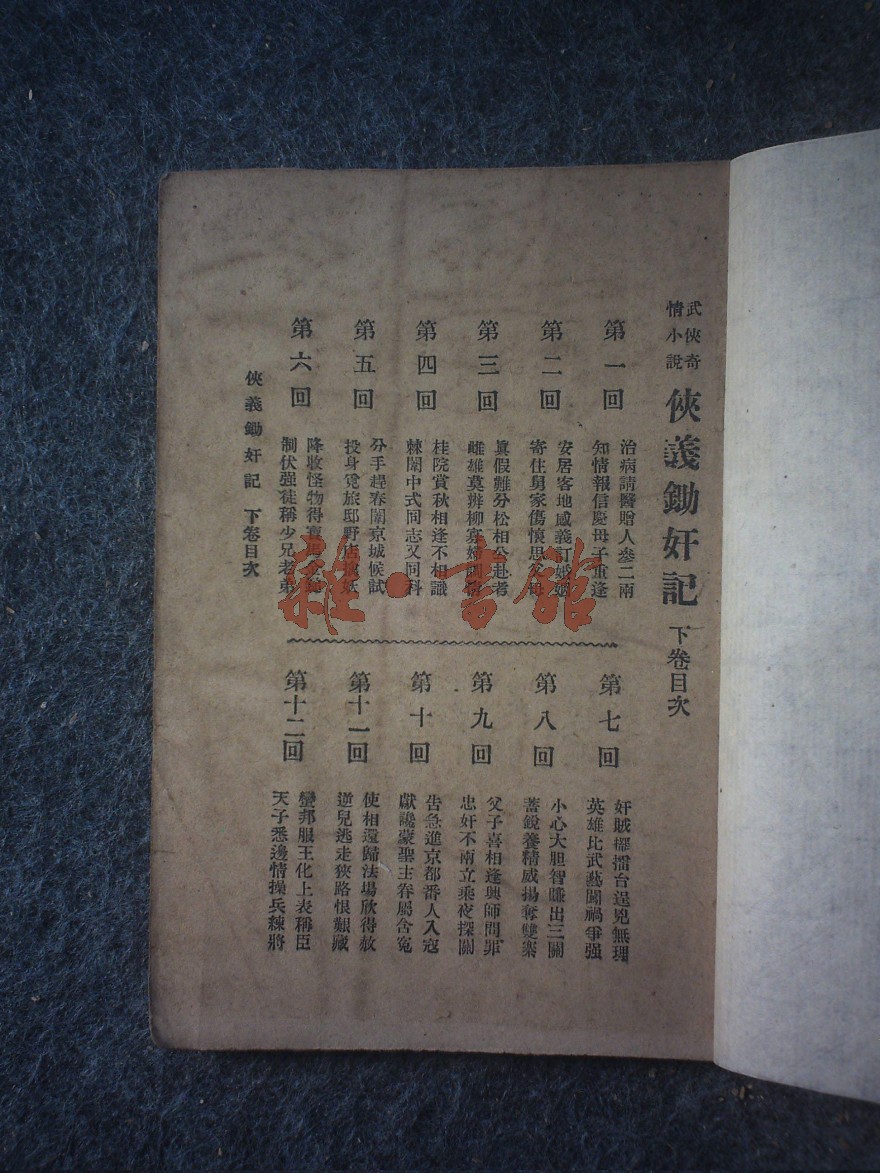 武俠奇情小說 俠義鋤奸記 下卷目次
第一回
治病請醫贈人參二兩
知情報信慶母子重逢
第二回
安居客地感義訂婚姻
寄住舅家傷懷思父母
第三回
眞假難分松相公赴考
雌雄莫辨柳寡婦訓情
第四回
桂院賞秋相逢不相識
棘闈中式同志又同科
第五回
分手趕春闈京城候試
投身覓旅邸野店擒妖
第六回
降收怪物得寶馬
制伏强徒稱少兄老弟
第七回
奸賊擺擂台逞兇無理
英雄比武藝闖禍爭强
第八回
小心大胆智賺出三關
蓄銳養精威揚奪雙寨
第九回
父子喜相逢興師問罪
忠奸不兩立乘夜探關
第十回
告急進京都番人入寇
獻讒蒙聖主眷屬含寃
第十一回
使相還歸法場欣得赦
逆兒逃走狹路恨難藏
第十二回
蠻邦服王化上表稱臣
天子悉邊情操兵練將
俠義鋤奸記 下卷目次
雜·書館